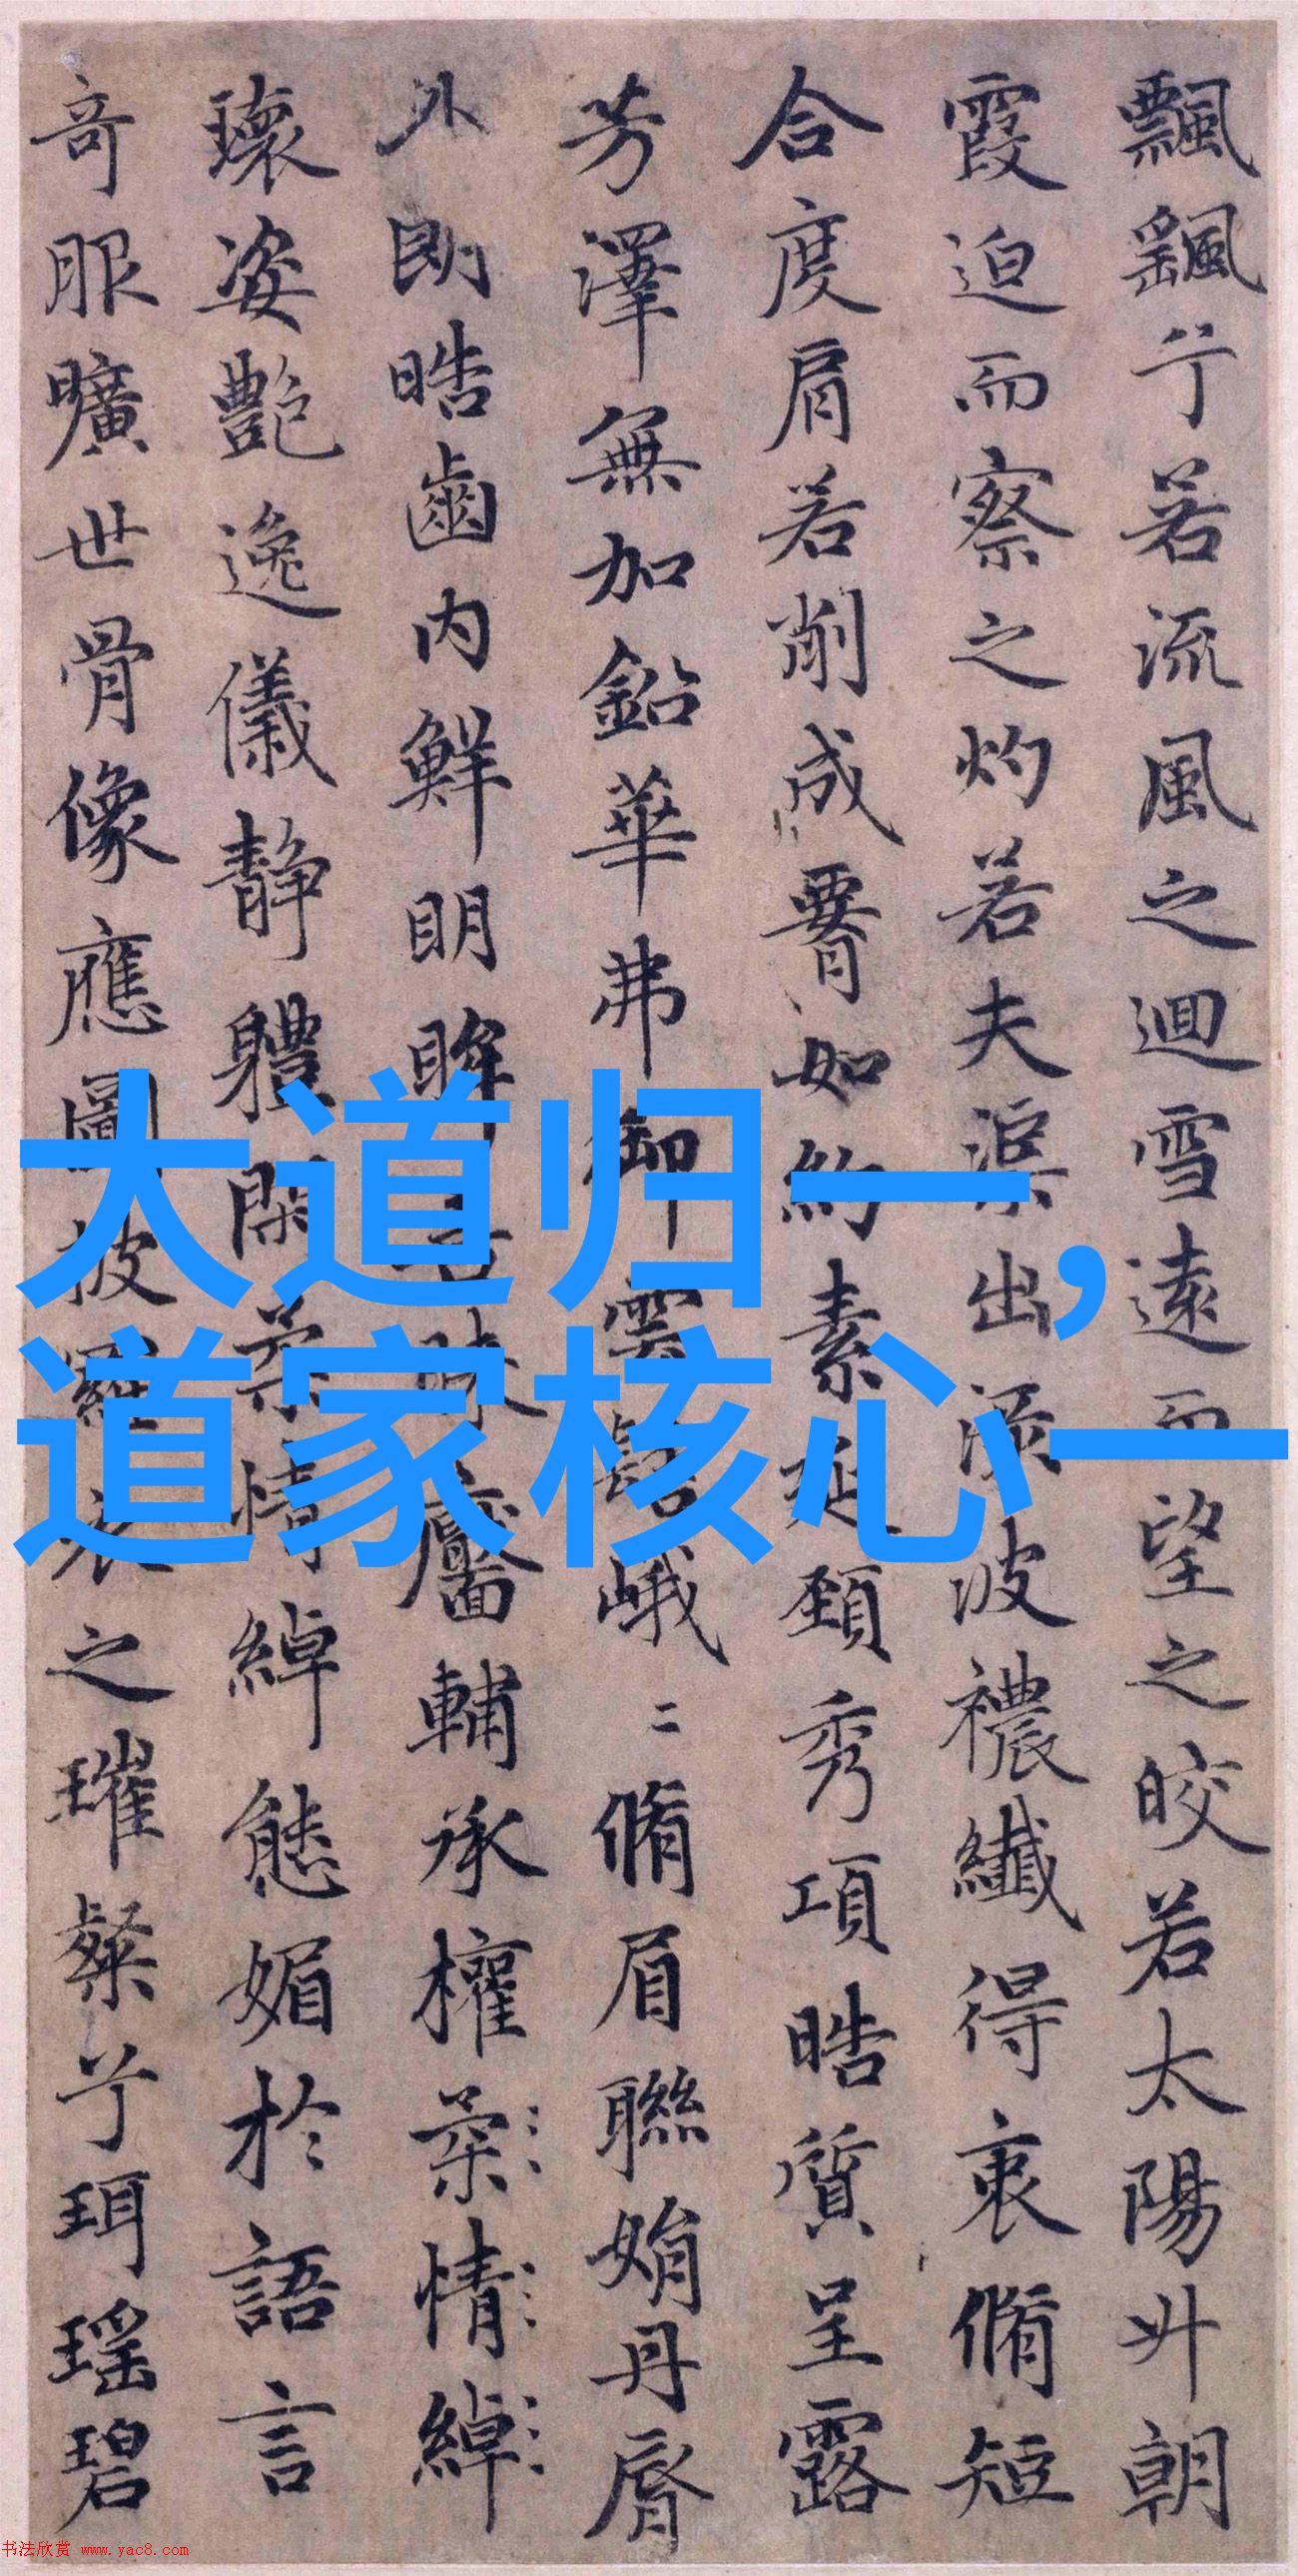 飄颻兮若流風之迴雪遠而望之皎若太陽升朝
霞迫而察之灼若夫渠出淥波襛纖得衷脩短
合度肩若削成䁏如約素延頸秀項皓質呈露
芳澤無加鉛華弗御雲髻峨〻脩眉聯娟丹脣
外朗皓齒內鮮明眸善睞靨輔承權柔情綽
瓌姿艷逸儀靜體閑柔情綽態媚於語言
奇服曠世骨像應圖披羅衣之璀粲兮珥瑤碧
大道归一，
道家核心一
书法欣赏 www.yac8.com